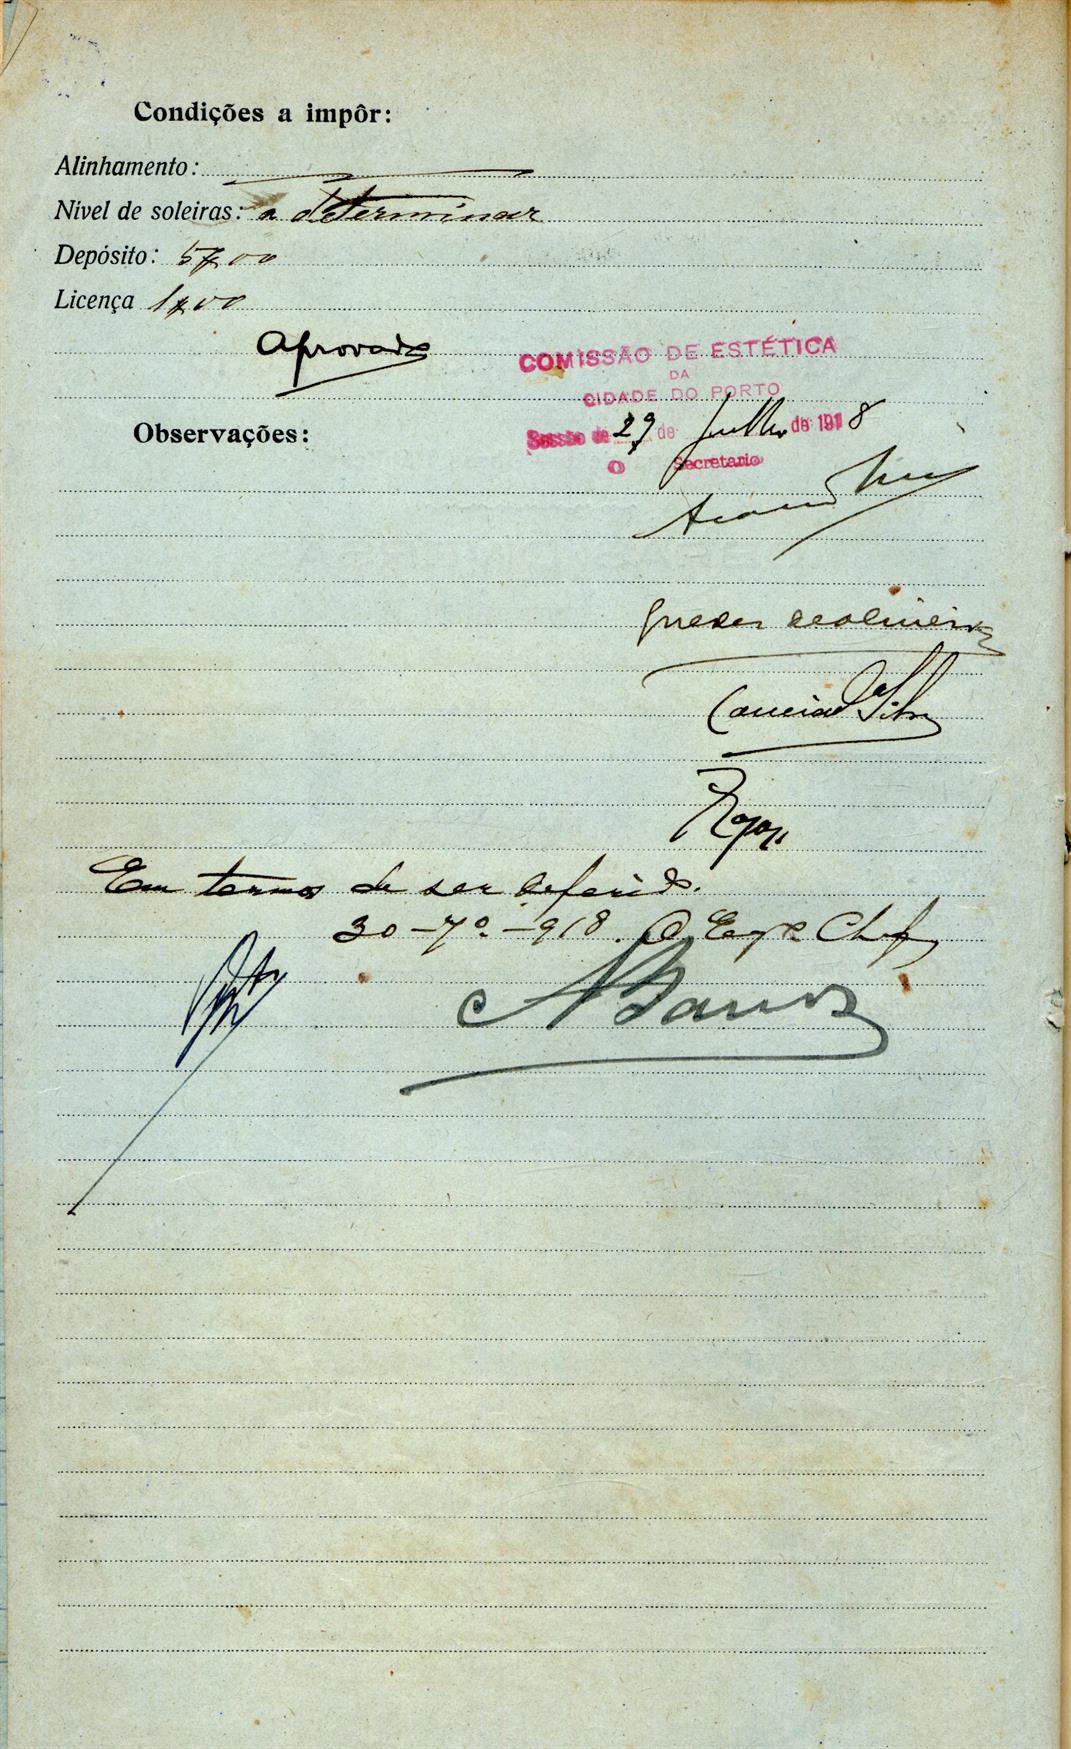 Condições a impôr:
Alinhamento:
Nível de soleiras: a determinar
Depósito: 5$00
Licença 1$00
Aprovado
COMISSÃO DE ESTÉTICA
DA
CIDADE DO PORTO
Sessão de 29 de Julho de 1918
O Secretario
Observações:
Guedes de Oliveira
Correia da Silva
Em termos de ser deferido.
30-7º-918. O Engº Chefe
A Barros